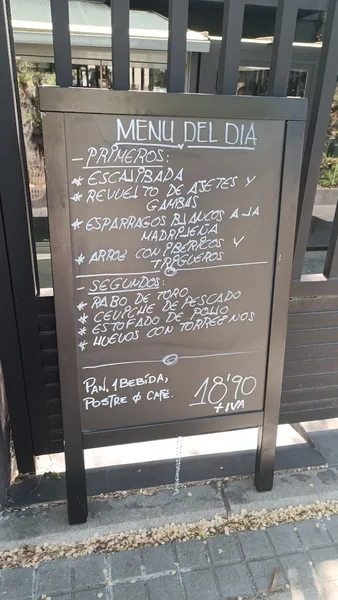 MENU DEL DIA
- PRIMEROS:
* ESCALIBADA
* REVUELTO DE AJETES Y
GAMBAS
* ESPARRAGOS BLANCOS A LA
MADRILEÑA
* ARROZ CON IBERICOS Y
TRIGUEROS
- SEGUNDOS:
* RABO DE TORO
* CEVICHE DE PESCADO
* ESTOFADO DE POLLO
* HUEVOS CON TORREZNOS
PAN, 1 BEBÍDA,
POSTRE O CAFÉ.
18'90
+ IVA